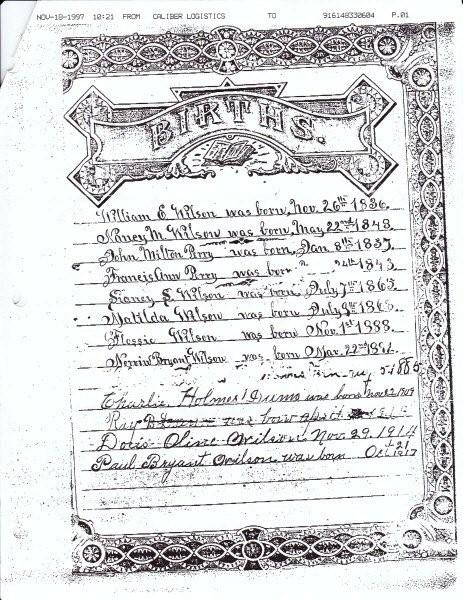 NOV-18-1997 10:21 FROM CALIBER LOGISTICS TO 916148330604 P.01
BIRTHS.
William E. Wilson was born, Nov. 26th 1836.
Nancy M. Wilson was born, May, 22nd 1848.
John Milton Perry was born, Jan. 8th 1837.
Francis Ann Perry was born " 24th
Sidney S. Wilson was born, July 7th
Matilda Wilson was born, July
Flossie Wilson was born Nov. 1st 1888.
Bryant Wilson was born Mar. 22nd
Charlie Holmes was born
Ray was born
Doris Olive Wilson. Nov. 29, 1914
Paul Bryant Wilson was born Oct 21 1917